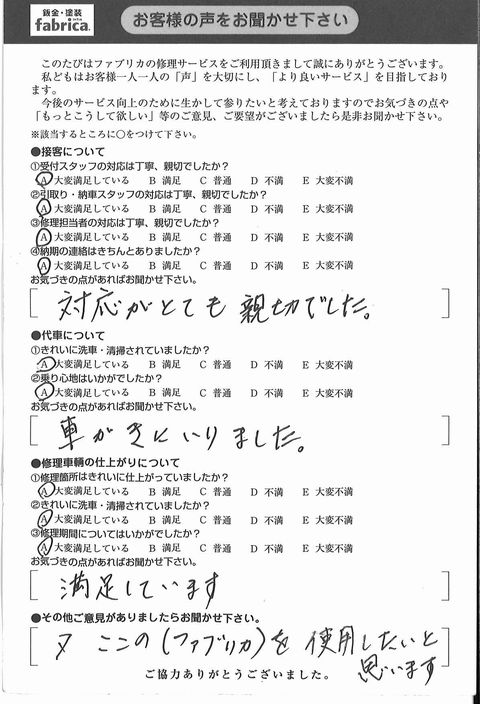 鈑金・塗装
fabrica.
お客様の声をお聞かせ下さい
このたびはファブリカの修理サービスをご利用頂きまして誠にありがとうございます。
私どもはお客様一人一人の「声」を大切にし、「より良いサービス」を目指しており
ます。
今後のサービス向上のために生かして参りたいと考えておりますのでお気づきの点や
「もっとこうして欲しい」等のご意見、ご要望がございましたら是非お聞かせ下さい。
※該当するところに○をつけて下さい。
●接客について
①受付スタッフの対応は丁寧、親切でしたか?
A 大変満足している B 満足 C 普通 D 不満 E 大変不満
②引取り・納車スタッフの対応は丁寧、親切でしたか?
A 大変満足している B 満足 C 普通 D 不満 E 大変不満
③修理担当者の対応は丁寧、親切でしたか?
A 大変満足している B 満足 C 普通 D 不満 E 大変不満
④納期の連絡はきちんとありましたか?
A 大変満足している B 満足 C 普通 D 不満 E 大変不満
お気づきの点があればお聞かせ下さい。
対応がとても親切でした。
●代車について
①きれいに洗車・清掃されていましたか?
A 大変満足している B 満足 C 普通 D 不満 E 大変不満
②乗り心地はいかがでしたか?
A 大変満足している B 満足 C 普通 D 不満 E 大変不満
お気づきの点があればお聞かせ下さい。
車がきにいりました。
●修理車輌の仕上がりについて
①修理箇所はきれいに仕上がっていましたか?
A 大変満足している B 満足 C 普通 D 不満 E 大変不満
②きれいに洗車・清掃されていましたか?
A 大変満足している B 満足 C 普通 D 不満 E 大変不満
③修理期間についてはいかがでしたか?
A 大変満足している B 満足 C 普通 D 不満 E 大変不満
お気づきの点があればお聞かせ下さい。
満足しています
●その他ご意見がありましたらお聞かせ下さい。
又 ここの(ファブリカ)を使用したいと
思います
ご協力ありがとうございました。